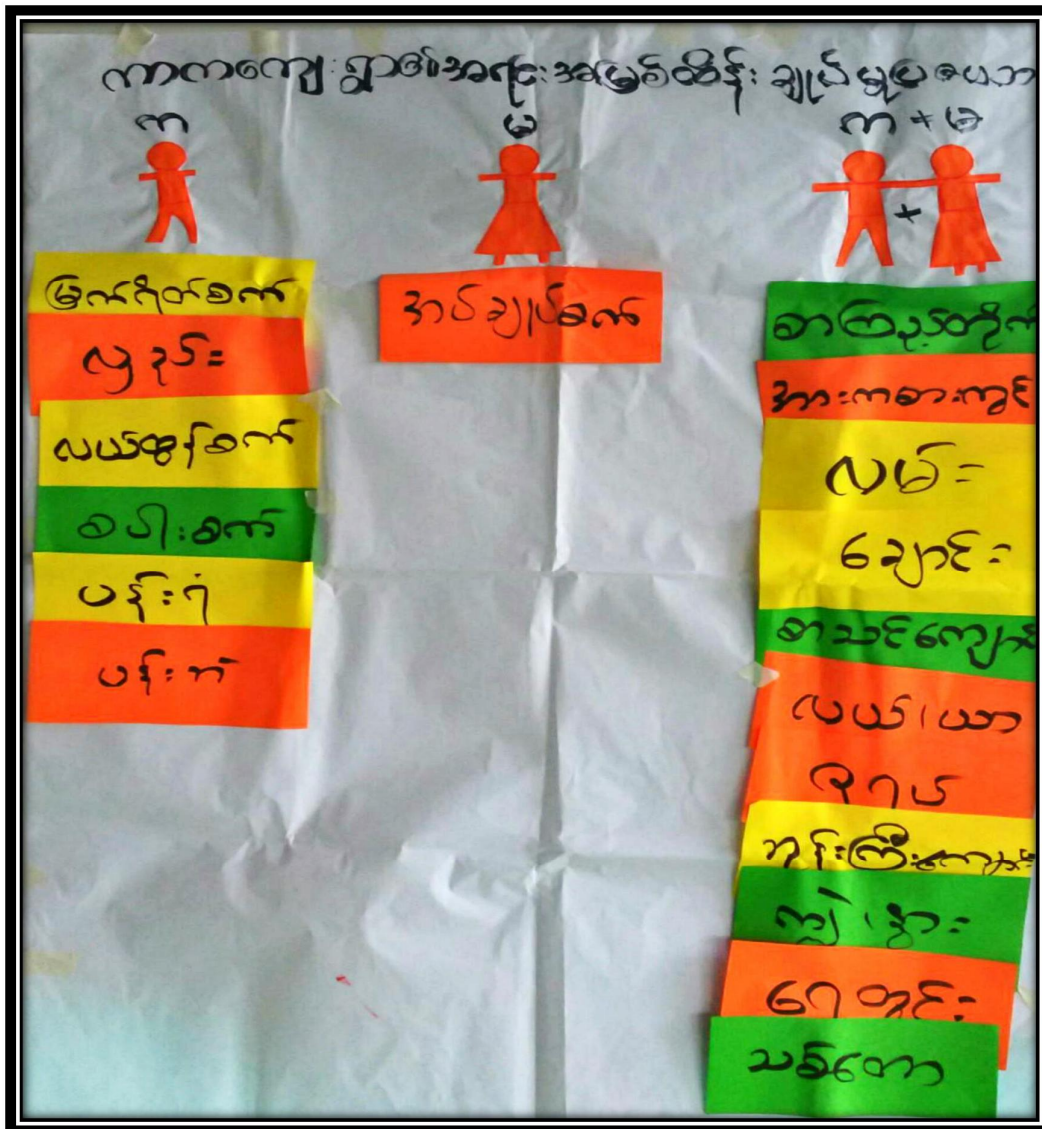 ကာကကျေးရွာ၏အရင်းအမြစ်ထိန်းချုပ်မှုပြဇယား
က
မ
က + မ
+
မြက်ရိတ်စက်
လှည်း
လယ်ထွန်စက်
စပါးစက်
ပန်းရံ
ပန်းဘဲ
အပ်ချုပ်စက်
စာကြည့်တိုက်
အားကစားကွင်း
လမ်း
ချောင်း
စာသင်ကျောင်း
လယ်၊ယာ
ဇရပ်
ဘုန်းကြီးကျောင်း
ကျွဲ၊နွား
ရေတွင်း
သစ်တော